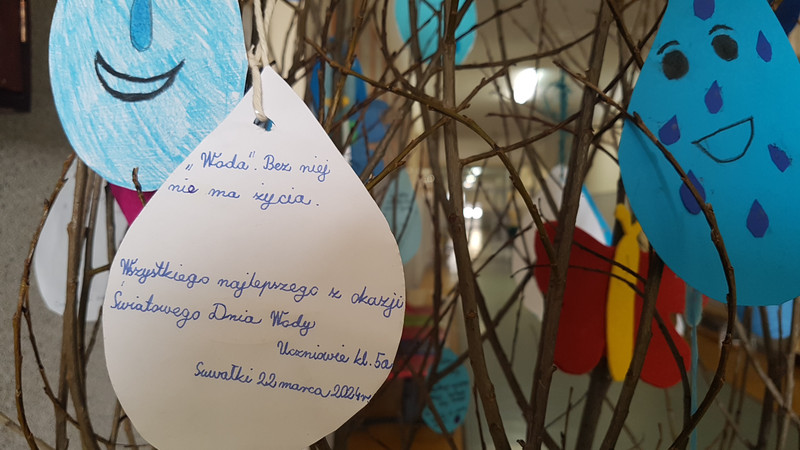 „Woda". Bez niej
nie ma życia.
Wszystkiego najlepszego z okazji
Światowego Dnia Wody
Uczniowie kl. 5a
Suwałki 22 marca 2024r